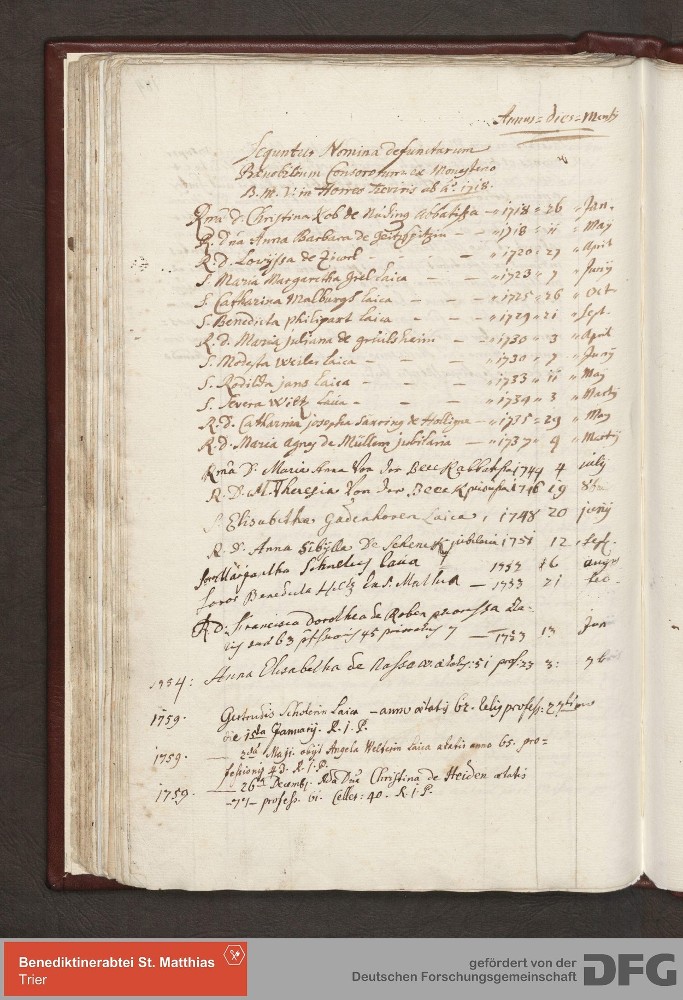 Annus = dies = Mensis
Sequntur Nomina defunctarum
Prænobilium Consororum ex Monasterio
B. M. V. in Horreo Treviris ab Aº. 1718.
Rma D. Christina Kob de Nüding Abbatissa - 1718 = 26 = Jan.
R. Dna Anna Barbara de - 1718 = 11 = May
R. D. Lovyssa de - 1720 = 27 = April
S. Maria Margaretha Griel Laica - 1723 = 7 = Junij
S. Catharina Malburgs Laica - 1725 = 26 = Oct
S. Benedicta Philipart Laica - 1729 = 21 = Sept.
R. D. Maria Juliana de - 1730 = 3 = April
S. Modesta Weiler Laica - 1730 = 7 = Junij
S. Rodilda Jans Laica - 1733 = 11 = May
S. Severa Wiltz Laica - 1734 = 3 = Martij
R. D. Catharina Josepha de - 1735 = 29 = May
R. D. Maria Agnes de Müllem jubilaria - 1737 = 9 = Martij
Rma D. Maria Anna Von der Beeck abbatissa 1744 4 july
R. D. M. Theresia Von der Beeck 1746 19 8bris
S. Elisabetha Gadenhoven Laica, 1748 20 junij
R. d. Anna Sibylla De Schenck jubilaria 1751 12 sept.
Soror Margaretha Laica 1752 16 augus
Soror Benedicta - 1753 21
R. D. Francisca Dorothea de Raben
63 45 7 - 1753 13 Jun
1754: Anna Elisabetha de Nassow ætatis: 51 prof: 23 3:
1759. Gertrudis Scholerin Laica - anno ætatis 62. Relig profess: 27
Die 1ma Januarij. R. I. P.
1759. - 2da Maji. obijt Angela Welterin Laica ætatis anno 65. pro-
fessionis 42. R. I. P.
1759. - 26ta Decembr. Rda Dna Christina de Heiden ætatis
- 77 - profess. 61. Celler: 40. R. I. P.
Benediktinerabtei St. Matthias
Trier
gefördert von der
Deutschen Forschungsgemeinschaft DFG